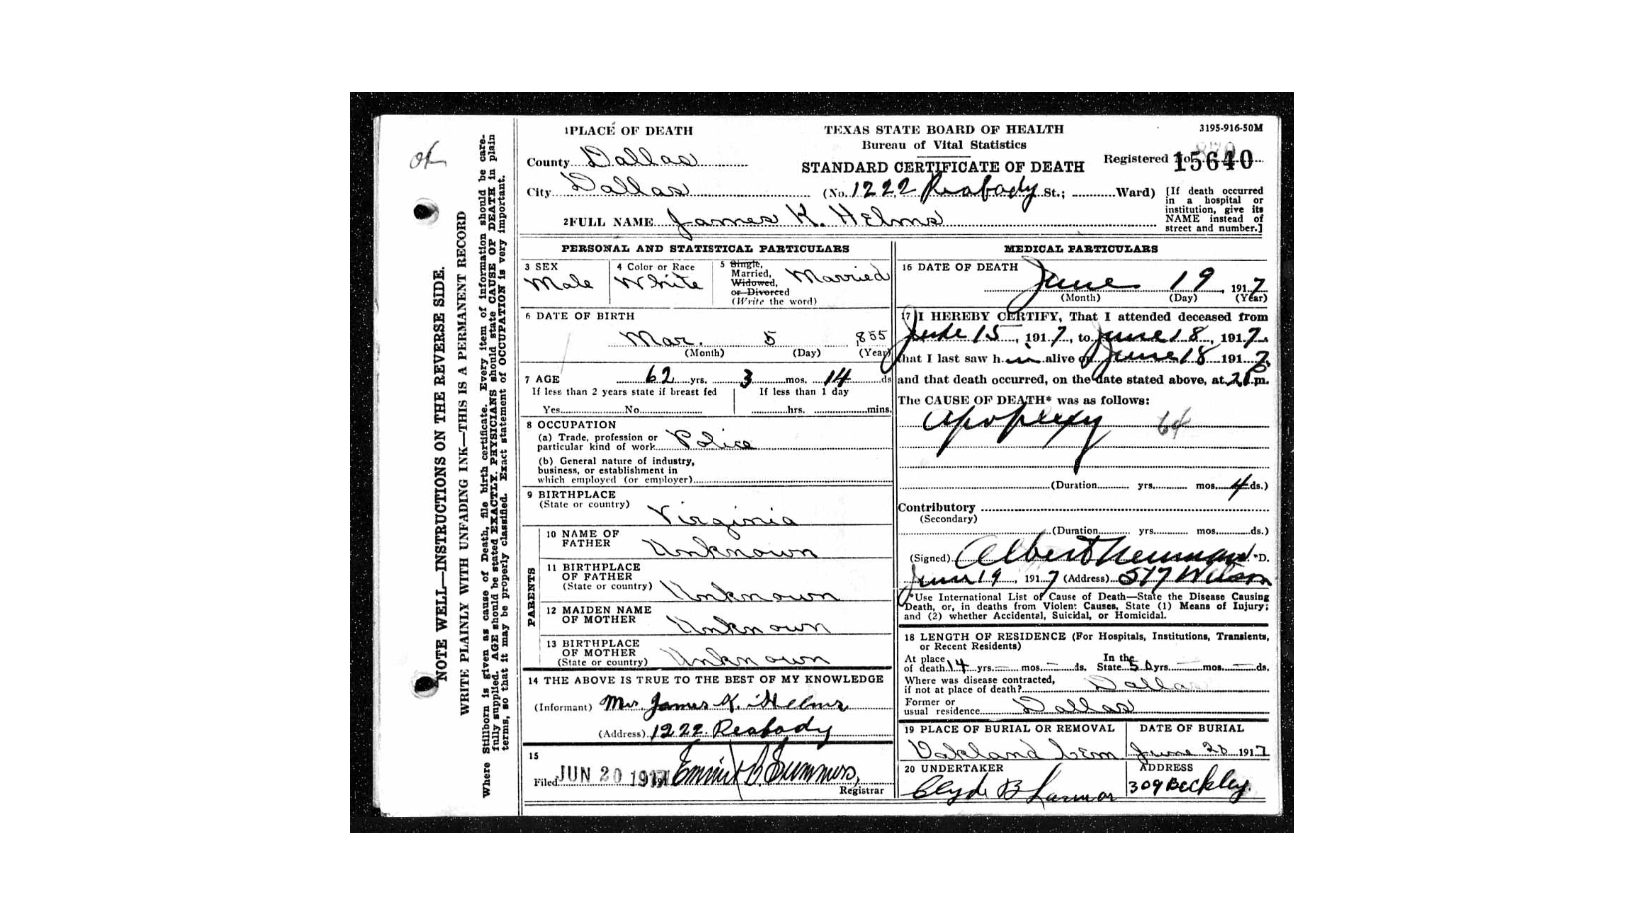 1 PLACE OF DEATH
TEXAS STATE BOARD OF HEALTH
3195-916-50M
Bureau of Vital Statistics
STANDARD CERTIFICATE OF DEATH
Registered No. 15640
County Dallas
City Dallas (No. 1222 Peabody St.; Ward)
[If death occurred
in a hospital or
institution, give its
NAME instead of
street and number.]
2 FULL NAME James K. Helms
PERSONAL AND STATISTICAL PARTICULARS
3 SEX
Male
4 Color or Race
White
5 Single,
Married,
Widowed,
or Divorced
(Write the word)
Married
6 DATE OF BIRTH
Mar. 5 855
(Month) (Day) (Year)
7 AGE 62 yrs. 3 mos. 14 ds
If less than 2 years state if breast fed
Yes No
If less than 1 day
hrs. mins.
8 OCCUPATION
(a) Trade, profession or
particular kind of work Police
(b) General nature of industry,
business, or establishment in
which employed (or employer)
9 BIRTHPLACE
(State or country) Virginia
PARENTS
10 NAME OF
FATHER Unknown
11 BIRTHPLACE
OF FATHER
(State or country) Unknown
12 MAIDEN NAME
OF MOTHER Unknown
13 BIRTHPLACE
OF MOTHER
(State or country) Unknown
14 THE ABOVE IS TRUE TO THE BEST OF MY KNOWLEDGE
(Informant) Mrs James K. Helms
(Address) 1222 Peabody
15
Filed JUN 20 1917
Registrar
MEDICAL PARTICULARS
16 DATE OF DEATH June 19, 1917
(Month) (Day) (Year)
17 I HEREBY CERTIFY, That I attended deceased from
June 15, 1917, to June 18, 1917,
that I last saw him alive on June 18 1917
and that death occurred, on the date stated above, at m.
The CAUSE OF DEATH* was as follows:
Apoplexy 64
(Duration yrs. mos. 4 ds.)
Contributory
(Secondary)
(Duration yrs. mos. ds.)
(Signed) Albert Neuman M.D.
June 19, 1917 (Address) 517 Wilson
*Use International List of Cause of Death—State the Disease Causing
Death, or, in deaths from Violent Causes, State (1) Means of Injury;
and (2) whether Accidental, Suicidal, or Homicidal.
18 LENGTH OF RESIDENCE (For Hospitals, Institutions, Transients,
or Recent Residents)
At place
of death 14 yrs. — mos — ds.
In the
State 50 yrs. — mos. — ds.
Where was disease contracted,
if not at place of death? Dallas
Former or
usual residence Dallas
19 PLACE OF BURIAL OR REMOVAL
Oakland Cem
DATE OF BURIAL
June 20 1917
20 UNDERTAKER
Clyde B
ADDRESS
309 Beckley
ok
NOTE WELL—INSTRUCTIONS ON THE REVERSE SIDE.
WRITE PLAINLY WITH UNFADING INK—THIS IS A PERMANENT RECORD
Where Stillborn is given as cause of Death, file birth certificate. Every item of information should be care-
fully supplied. AGE should be stated EXACTLY. PHYSICIANS should state CAUSE OF DEATH in plain
terms, so that it may be properly classified. Exact statement of OCCUPATION is very important.